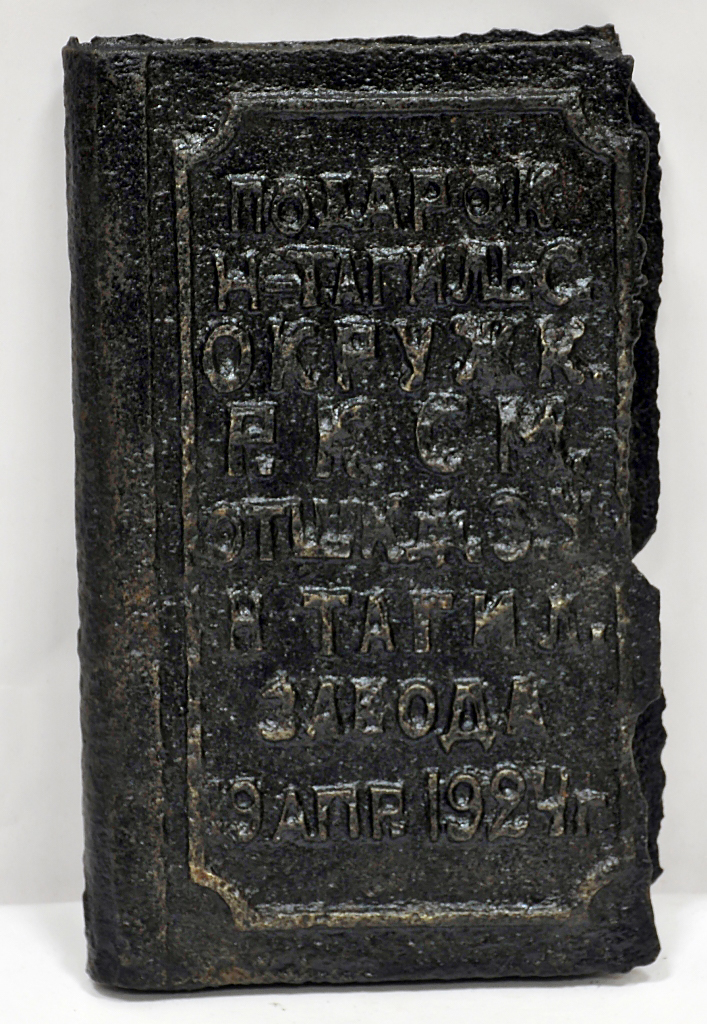 ПОДАРОК
Н-ТАГИЛЬ-С.
ОКРУЖ.К.
Р.К.С.М.
Н-ТАГИЛ.
ЗАВОДА
9 АПР. 1924 г